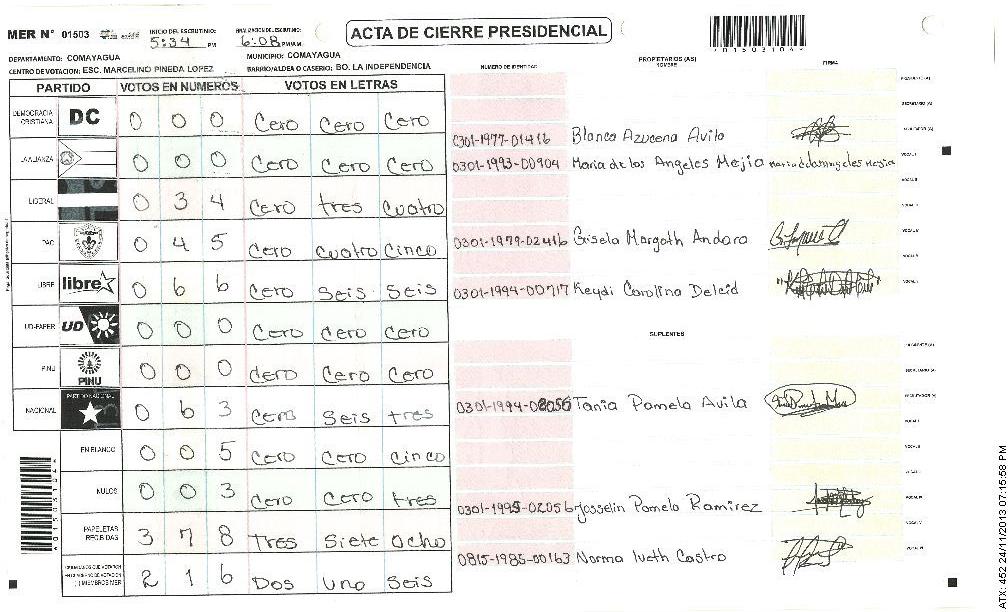 MER N° 01503
INICIO DEL ESCRUTINIO:
5:34 PM
FINALIZACION DEL ESCRUTINIO:
6:08 PM/AM
ACTA DE CIERRE PRESIDENCIAL
DEPARTAMENTO: COMAYAGUA
MUNICIPIO: COMAYAGUA
CENTRO DE VOTACION: ESC. MARCELINO PINEDA LOPEZ
BARRIO/ALDEA O CASERIO: BO. LA INDEPENDENCIA
PARTIDO VOTOS EN NUMEROS VOTOS EN LETRAS
DEMOCRACIA CRISTIANA DC 0 0 0 Cero Cero Cero
LA ALIANZA 0 0 0 Cero Cero Cero
LIBERAL 0 3 4 Cero tres cuatro
PAC 0 4 5 Cero cuatro cinco
LIBRE libre 0 6 6 Cero Seis Seis
UD-FAPER UD 0 0 0 Cero Cero Cero
PINU PINU 0 0 0 Cero Cero Cero
NACIONAL PARTIDO NACIONAL 0 6 3 Cero Seis tres
EN BLANCO 0 0 5 Cero Cero cinco
NULOS 0 0 3 Cero Cero tres
PAPELETAS RECIBIDAS 3 7 8 Tres Siete Ocho
2 1 6 Dos Uno Seis
NUMERO DE IDENTIDAD
PROPIETARIOS (AS)
NOMBRE
FIRMA
0301-1977-01416 Blanca Azucena Avila
0301-1993-00904 Maria de los Angeles Mejia
0301-1979-02416 Gisela Margoth Andara
0301-1994-00717 Keydi Carolina Deleid
SUPLENTES
0301-1994-02056 Tania Pamela Avila
0301-1995-02056 Josselin Pamela Ramirez
0815-1985-00163 Norma Iveth Castro
ATX: 452 24/11/2013 07:15:58 PM